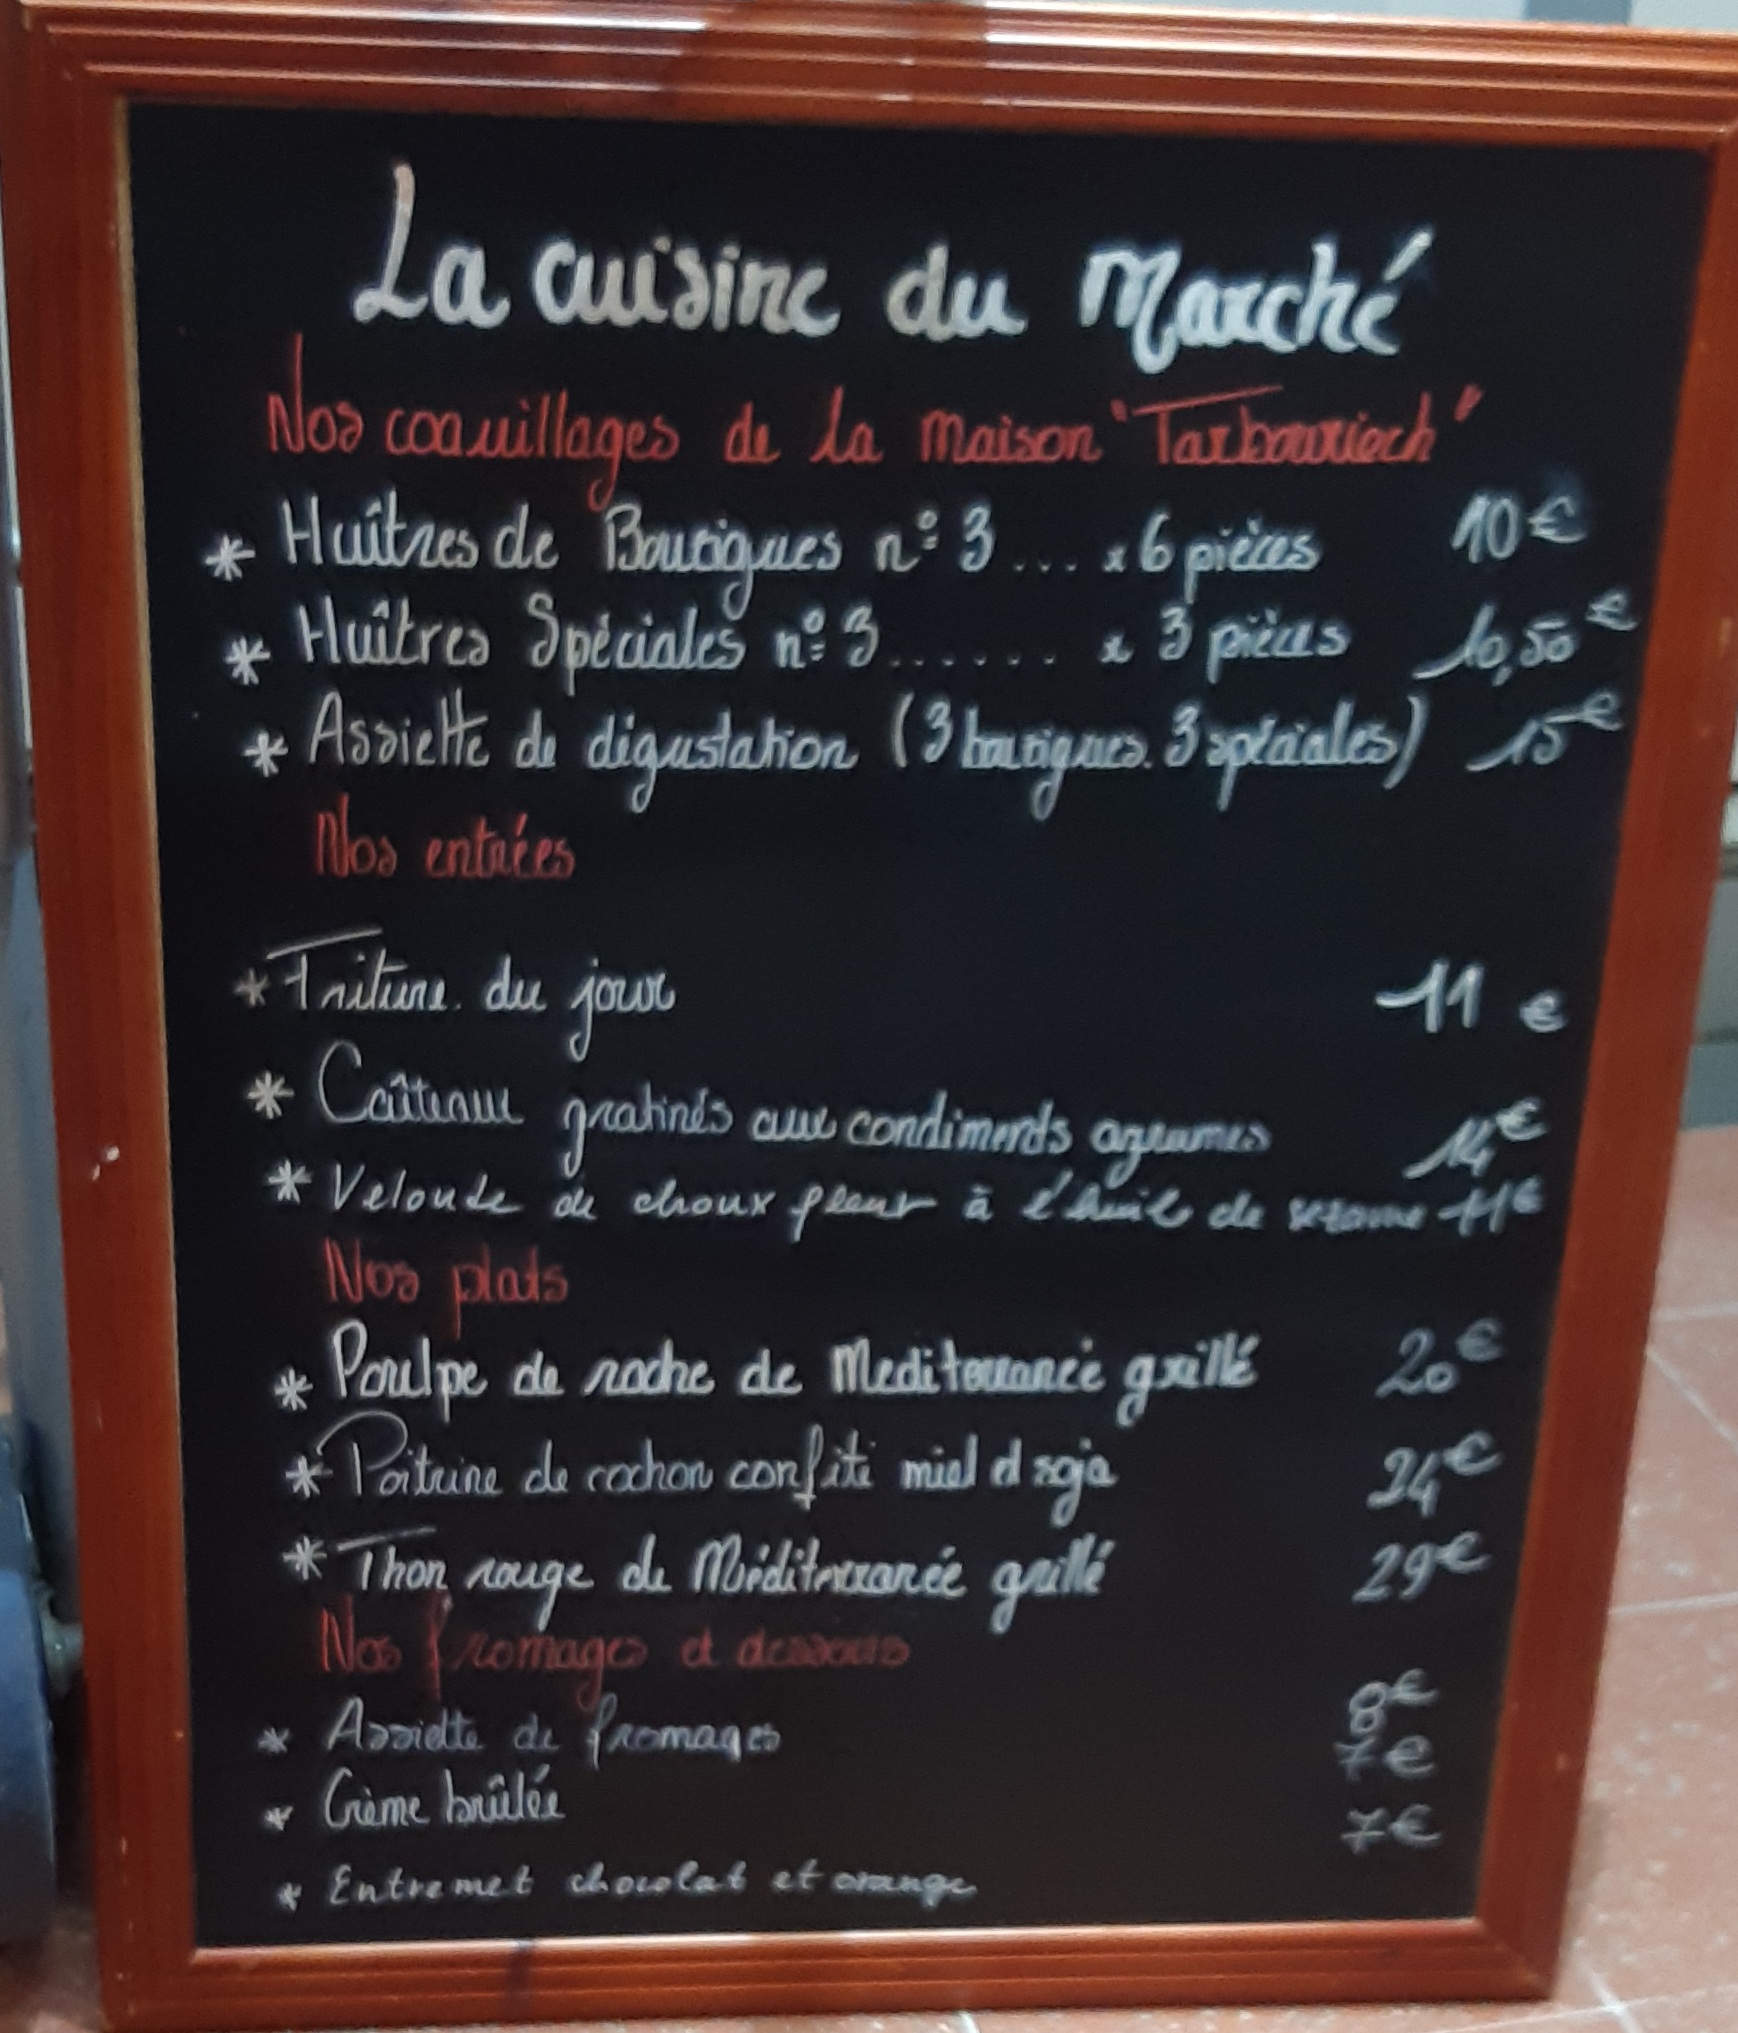 La cuisine du Marché
Nos coquillages de la maison "Tarbouriech"
* Huîtres de Bouzigues n° 3 ... x 6 pièces 10 €
* Huîtres Spéciales n° 3 ...... x 3 pièces 10,50 €
* Assiette de dégustation (3 bouzigues. 3 spéciales) 15 €
Nos entrées
* Friture du jour 11 €
* Coûteaux gratinés aux condiments agrumes 14 €
* Veloute de choux fleur à l'huile de sesame 11 €
Nos plats
* Poulpe de roche de Mediterranée grillé 20 €
* Poitrine de cochon confite miel et soja 24 €
* Thon rouge de Méditerranée grillé 29 €
Nos fromages et desserts
* Assiette de fromages 8 €
* Crème brûlée 7 €
* Entremet chocolat et orange 7 €